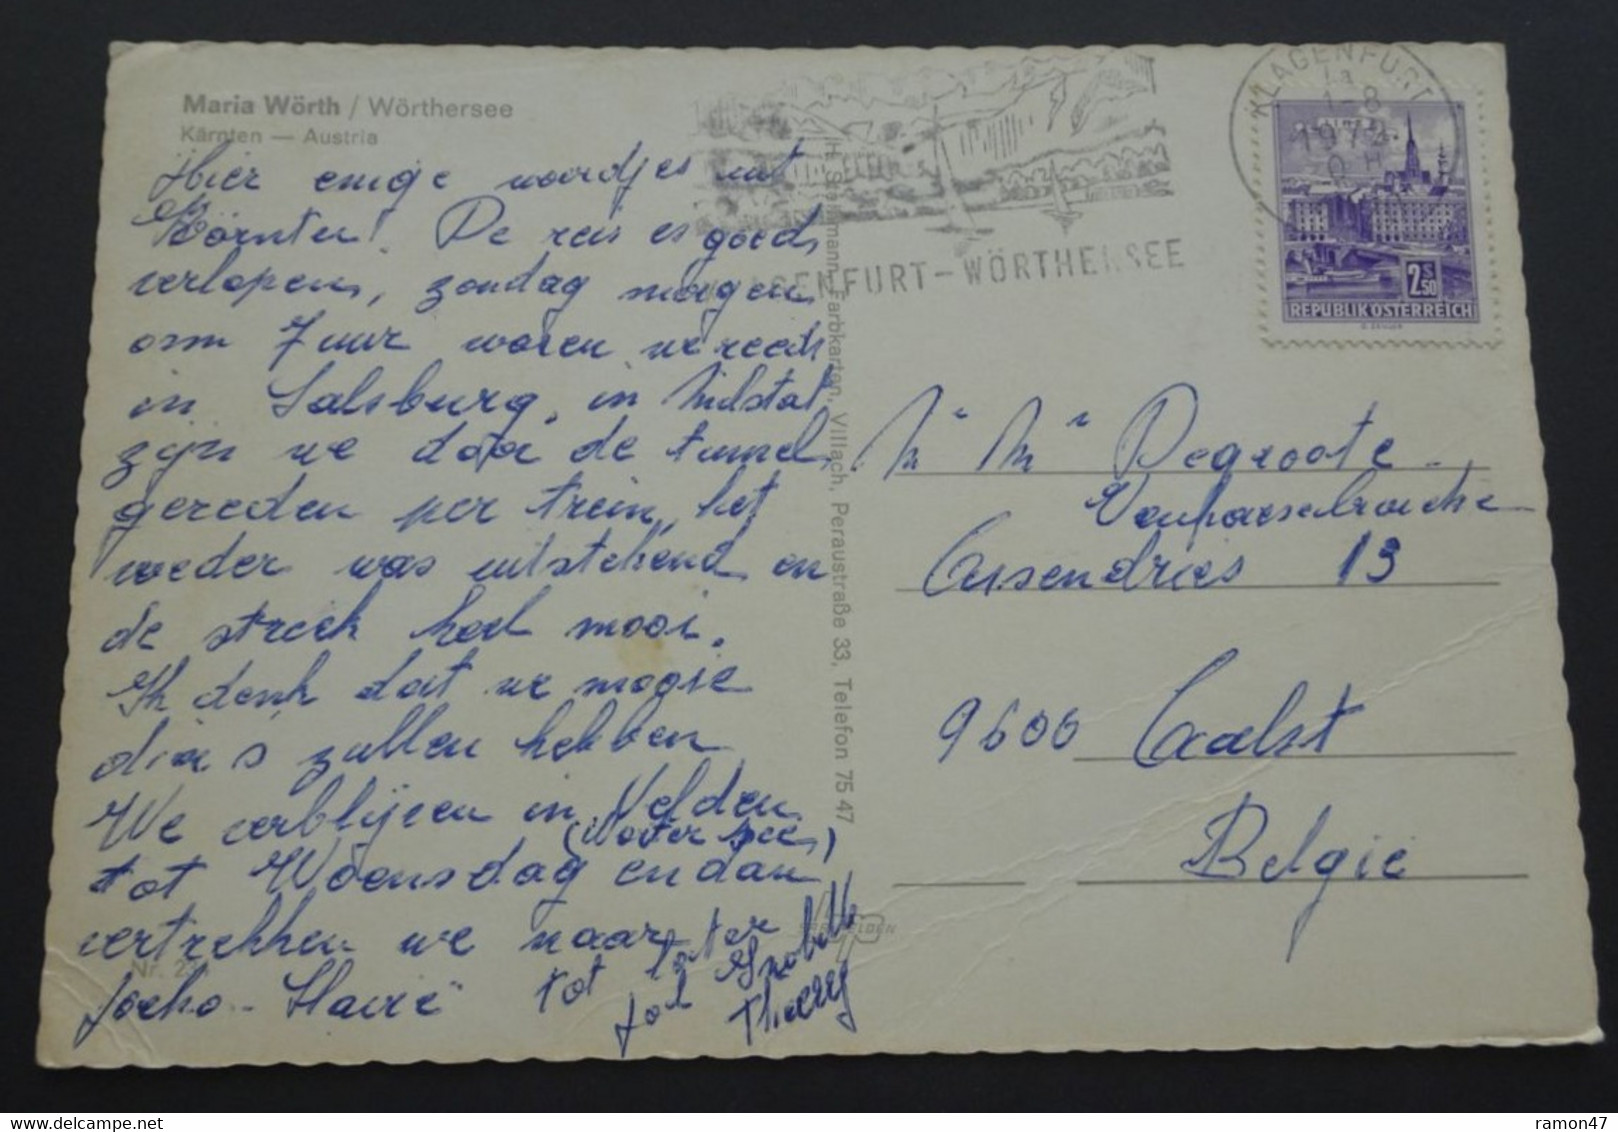 Maria Wörth / Wörthersee
Kärnten — Austria
Hier enige woordjes uit
Körnten! De reis es goed
verlopen, zondag morgen
om 7 uur waren we reeds
in Salsburg, in
zijn we door de tunnel
gereden per trein, het
weder was uitstekend en
de streek heel mooi.
Ik denk dat we mogie
dia's zullen hebben
We verblijven in Velden
(Worter see)
tot Woensdag en dan
vertrekken we naar
Joeho-Slavië
tot later
Thierry
Nr. 23
Farbkarten, Villach, Peraustraße 33, Telefon 75 47
KLAGENFURT
1-8
KLAGENFURT-WÖRTHERSEE
2.S50
REPUBLIK ÖSTERREICH
Mr Mr Degroote
13
9600 Aalst
Belgie
ramon47